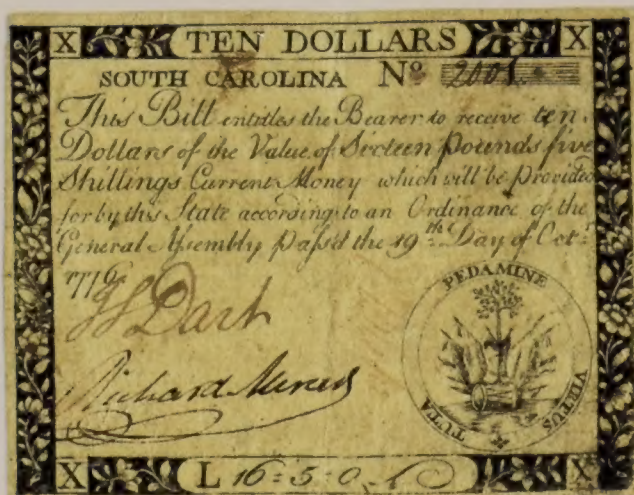 X TEN DOLLARS X
SOUTH CAROLINA Nº 2001
This Bill entitles the Bearer to receive ten
Dollars of the Value of Sixteen Pounds five
Shillings Current Money which will be Provided
for by this State according to an Ordinance of the
General Assembly Pass'd the 19th Day of Octr
1776
Dart
Richard
PEDAMINE
VIRTUS
TUTA
X L 16=5=0 X